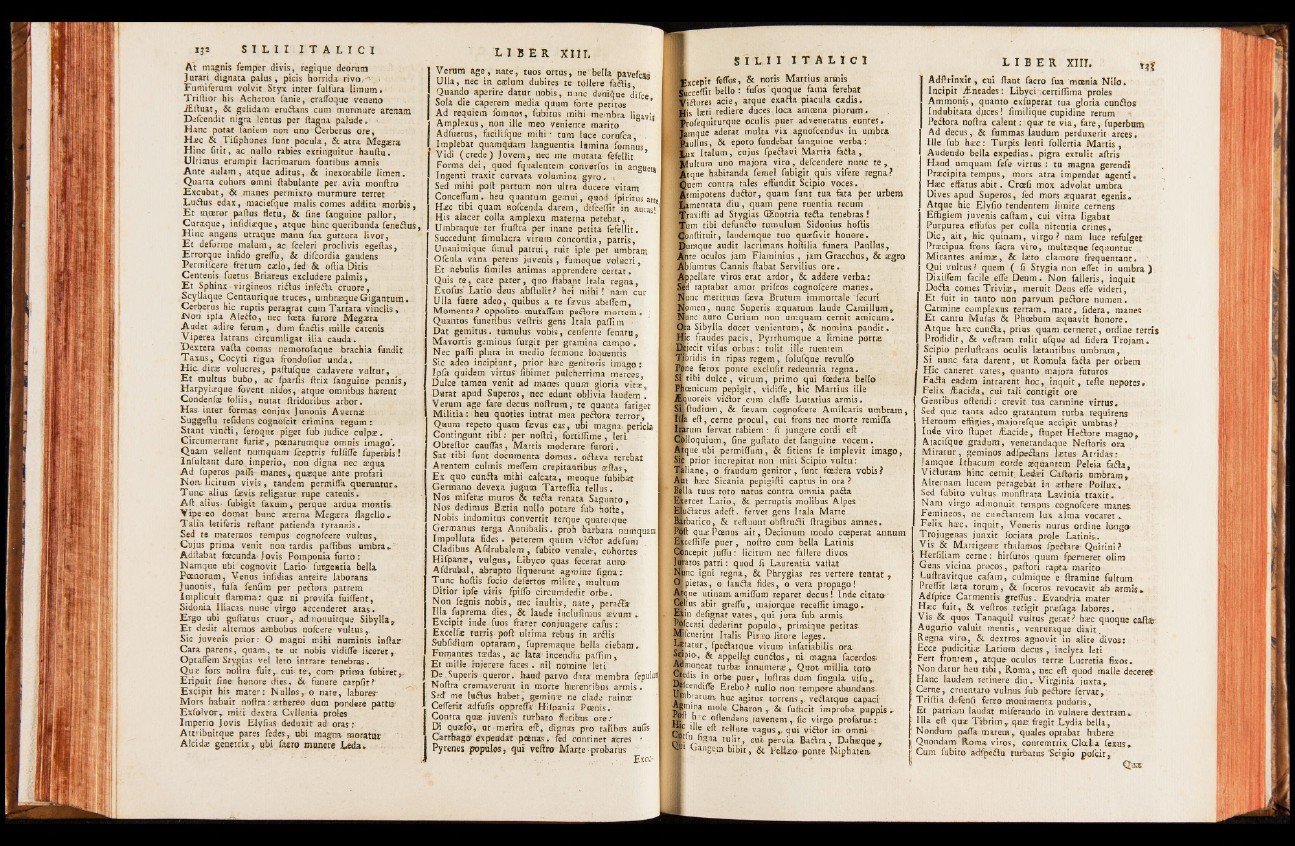 132 SILII ITALICI
At magnis semper divis, regique deorum
Jurari dignata palus, picis horrida rivo,
Fumiferum volvit Styx inter sulfura limum.
Tristior his Acheron sanie, crassoque veneno
Æstuat, & gelidam eructans cum murmure arenam
Descendit nigra lentus per stagna palude.
Hanc potat saniem non uno Cerberus ore,
Hæc & Tisiphones sunt pocula, & atra Megæra
Hinc sitit, ac nullo rabies extinguitur haustu.
Ultrimus erumpit lacrimarum fontibus amnis
Ante aulam, atque aditus, & inexorabile limen.
Quarta cohors omni stabulante per avia monstro
Excubat, & manes permixto murmure terret
Luctus edax, maciesque malis comes addita morbis,
Et mœror pastus fletu, & sine sanguine pallor,
Curæque, insidiæque, atque hinc queribunda senectus,
Hinc angens utraque manu sua guttura livor,
Et deforme malum, ac sceleri proclivis egestas,
Errorque infido gressu, & discordia gaudens
Permiscere fretum cælo, sed & ostia Ditis
Centenis suetus Briareus excludere palmis,
Et Sphinx virgineos rictus infecta cruore,
Scyllaque Centaurique truces, umbræque Gigantum.
Cerberus hic ruptis peragrat cum Tartara vinclis,
Non ipsa Alecto, nec fœta furore Megæra
Audet adire ferum, dum fractis mille catenis
Viperea latrans circumligat ilia cauda.
Dextera vasta comas nemorosaque brachia fundit
Taxus, Cocyti rigua frondosior unda.
Hic diræ volucres, pastusque cadavere vultur,
Et multus bubo, ac sparsis strix sanguine pennis,
Harpyiæque fovent nidos, atque omnibus hærent
Condensæ foliis, nutat stridoribus arbor.
Has inter formas conjux Junonis Avernæ
Suggestu residens cognoscit crimina regum:
Stant vincti, seroque piget sub judice culpæ.
Circumerrant furiæ, pœnarumque omnis imago.
Quam vellent numquam sceptris fulsisse superbis!
Insultant duro imperio, non digna nec æqua
Ad superos passi manes, quæque ante profari
Non licitum vivis, tandem permissa queruntur.
Tunc alius sævis religatur rupe catenis.
Ast alius subigit saxum, perque ardua montis
Vipereo domat hunc æterna Megæra flagello.
Talia letiferis restant patienda tyrannis.
Sed te maternos tempus cognoscere vultus,
Cujus prima venit non tardis passibus umbra.
Adstabat fœcunda Jovis Pomponia furto:
Namque ubi cognovit Latio surgentia bella
Pœnorum, Venus insidias anteire laborans
Junonis, fusa sensim per pectora partem
Implicuit flamma: quæ ni provisa fuissent,
Sidonia Iliacas nunc virgo accenderet aras.
Ergo ubi gustatus cruor, admonuitque Sibylla,
Et dedit alternos ambobus noscere vultus,
Sic juvenis prior: O magni mihi numinis instar
Cara parens, quam, te ut nobis vidisse liceret,
Optassem Stygias vel leto intrare tenebras.
Quæ fors nostra fuit, cui te, cum prima subiret,
Eripuit sine honore dies, & funere carpsit?
Excipit his mater: Nullos, o nate, labores
Mors habuit nostra: æthereo dum pondere partu
Exsolvor, miti dextra Cyllenia proles
Imperio Jovis Elysias deduxit ad oras:
Attribuitque pares sedes, ubi magna moratur
Alcidæ genetrix, ubi sacro munere Leda.
LIBER XIII.
Verum age, nate, tuos ortus, ne bella pavescas
Ulla, nec in cælum dubites te tollere factis,
Quando aperire datur nobis, nunc denique disce.
Sola die caperem media quum forte petitos
Ad requiem somnos, subitus mihi membra ligavit
Amplexus, non ille meo veniente marito
Adsuetus, facilisque mihi: tum luce corusca,
Implebat quamquam languentia lumina somnus,
Vidi (crede) Jovem, nec me mutata fefellit
Forma dei, quod squalentem conversus in anguem
Ingenti traxit curvata volumina gyro.
Sed mihi post partum non ultra ducere vitam
Concessum. heu quantum gemui, quod spiritus ante
Hæc tibi quam noscenda darem, discessit in auras!
His alacer colla amplexu materna petebat,
Umbraque ter frustra per inane petita fefellit.
Succedunt simulacra virum concordia, patris,
Unanimique simul patrui, ruit ipse per umbram
Oscula vana petens juvenis, fumoque volucri,
Et nebulis similes animas apprendere certat.
Quis te, care pater, quo stabant Itala regna,
Exosus Latio deus abstulit? hei mihi! nam cur
Ulla fuere adeo, quibus a te sævus abessem,
Momenta? opposito mutassem pectore mortem.
Quantos funeribus vestris gens Itala passim
Dat gemitus. tumulus vobis, censente senatu,
Mavortis geminus surgit per gramina campo.
Nec passi plura in medio sermone loquentis
Sic adeo incipiunt, prior hæc genitoris imago:
Ipsa quidem virtus sibimet pulcherrima merces,
Dulce tamen venit ad manes quum gloria vitæ,
Durat apud Superos, nec edunt oblivia laudem.
Verum age fare decus nostrum, te quanta fatiget
Militia: heu quoties intrat mea pectora terror,
Quum repeto quam sævus eas, ubi magna pericla
Contingunt tibi: per nostri, fortissime, leti
Obtestor caussas, Martis moderare furori.
Sat tibi sunt documenta domus. octava terebat
Arentem culmis messem crepitantibus æstas,
Ex quo cuncta mihi calcata, meoque subibat
Germano devexa jugum Tartessia tellus.
Nos miseræ muros & tecta renata Sagunto,
Nos dedimus Bætin nullo potare sub hoste,
Nobis indomitus convertit terque quaterque
Germanus terga Annibalis. proh barbara numquam
Impolluta fides. peterem quum victor adesum
Cladibus Asdrubalem, subito venale, cohortes
Hispanæ, vulgus, Libyco quas fecerat auro
Asdrubal, abrupto liquerunt agmine signa:
Tunc hostis socio desertos milite, multum
Ditior ipse viris spisso circumdedit orbe.
Non segnis nobis, nec inultis, nate, peracta
Illa suprema dies, & laude inclusimus ævum.
Excipit inde suos frater conjungere casus:
Excelsæ turris post ultima rebus in arctis
Subsidium optaram, supremaque bella ciebam.
Fomantes tædas, ac lata incendia passim,
Et mille injecere faces. nil nomine leti
De Superis queror. haud parvo data membra sepulcro
Nostra cremaverunt in morte hærentibus armis.
Sed me luctus habet, geminæ ne clade ruinæ
Cesserit adfusis oppressa Hispania Pœnis.
Contra quæ juvenis turbato fletibus ore:
Di quæso, ut merita est, dignas pro talibus ausis
Carthago expendat pœnas. sed continet acres
Pyrenes populos, qui vestro Marte probatus
Exce-
SILII ITALICI
Excepit fessos, & notis Martius armis
Successit bello: fusos quoque fama ferebat
Victores acie, atque exacta piacula cædis.
His læti rediere duces loca amœna piorum.
Prosequiturque oculis puer adveneratus euntes.
Jamque aderat multa vix agnoscendus in umbra
Paullus, & epoto fundebat sanguine verba:
Lux Italum, cujus spectavi Martia facta,
Multum uno majora viro, descendere nunc te,
Atque habitanda semel subigit quis visere regna?
Quem contra tales effundit Scipio voces.
Armipotens ductor, quam sunt tua fata per urbem
Lamentata diu, quam pene ruentia tecum
Traxisti ad Stygias Œnotria tecta tenebras!
Tum tibi defuncto tumulum Sidonius hostis
Constituit, laudemque tuo quæsivit honore.
Dumque audit lacrimans hostilia funera Paullus,
Ante oculos jam Flaminius, jam Gracchus, & ægro
Absumtus Cannis stabat Servilius ore.
Appellare viros erat ardor, & addere verba:
Sed raptabat amor priscos cognoscere manes.
Nunc meritum sæva Brutum immortale securi
Nomen, nunc Superis æquatum laude Camillum,
Nunc auro Curium non umquam cernit amicum.
Ora Sibylla docet venientum, & nomina pandit.
Hic fraudes pacis, Pyrrhumque a limine portæ
Dejecit visus orbus: tulit ille ruentem
Tibridis in ripas regem, solusque revulso
Pone ferox ponte exclusit redeuntia regna.
Si tibi dulce, virum, primo qui fœdera bello
Phœnicum pepigit, vidisse, hic Martius ille
Æquoreis victor cum classe Lutatius armis.
Si studium, & sævam cognoscere Amilcaris umbram,
Illa est, cerne procul, cui frons nec morte remissa
Irarum servat rabiem: si jungere cordi est
Colloquium, sine gustato det sanguine vocem.
Atque ubi permissum, & sitiens se implevit imago,
Sic prior increpitat non miti Scipio vultu:
Taliane, o fraudum genitor, sunt fœdera vobis?
Aut hæc Sicania pepigisti captus in ora?
Bella tuus toto natus contra omnia pacta
Exercet Latio, & perruptis molibus Alpes
Eluctatus adest. fervet gens Itala Marte
Barbarico, & refluunt obstructi stragibus amnes.
Post quæ Pœnus ait, Decimum modo cœperat annum
Excessisse puer, nostro cum bella Latinis
Concepit jussu: licitum nec fallere divos
Juratos patri: quod si Laurentia vastat
Nunc igni regna, & Phrygias res vertere tentat,
O pietas, o sancta fides, o vera propago!
Atque utinam amissum reparet decus! Inde citato
Celsus abit gressu, majorque recessit imago.
Exin designat vates, qui jura sub armis
Poscenti dederint populo, primique petitas
Miscuerint Italis Piræo litore leges.
Lætatur, spectatque virum insatiabilis ora
Scipio, & appellet cunctos, ni magna sacerdos
Admoneat turbæ innumeræ. Quot millia toto
Credis in orbe puer, lustras dum singula visu,
Descendisse Erebo? nullo non tempore abundans
Umbrarum huc agitur torrens, vectatque capaci
Agmina mole Charon, & sufficit improba puppis.
Post hæc ostendens juvenem, sic virgo profatur:
Hic ille est tellure vagus, qui victor in omni
Cursu signa tulit, cui pervia Bactra, Dahæque,
Qui Gangem bibit, & Pellæo ponte Niphaten
LIBER XIII. 133
Adstrinxit, cui stant sacro sua mœnia Nilo.
Incipit Æneades: Libyci certissima proles
Ammonis, quanto exsuperat tua gloria cunctos
Indubitata duces! similique cupidine rerum
Pectora nostra calent: quæ te via, fare, superbum
Ad decus, & summas laudum perduxerit arces.
Ille sub hæc: Turpis lenti sollertia Martis,
Audendo bella expedias. pigra extulit astris
Haud umquam sese virtus: tu magna gerendi
Præcipita tempus, mors atra impendet agenti.
Hæc effatus abit. Crœsi mox advolat umbra
Dives apud Superos, sed mors æquarat egenis.
Atque hic Elysio tendentem limite cernens
Effigiem juvenis castam, cui vitta ligabat
Purpurea effusos per colla nitentia crines,
Dic, ait, hic quinam, virgo? nam luce refulget
Præcipua frons sacra viro, multæque sequuntur
Mirantes animæ, & læto clamore frequentant.
Qui vultus? quem (si Stygia non esset in umbra)
Dixissem facile esse Deum. Non falleris, inquit
Docta comes Triviæ, meruit Deus esse videri,
Et fuit in tanto non parvum pectore numen.
Carmine complexus terram, mare, sidera, manes
Et cantu Musas & Phœbum æquavit honore.
Atque hæc cuncta, prius quam cerneret, ordine terris
Prodidit, & vestram tulit usque ad sidera Trojam.
Scipio perlustrans oculis lætantibus umbram,
Si nunc fata darent, ut Romula facta per orbem
Hic caneret vates, quanto majora futuros
Facta eadem intrarent hoc, inquit, teste nepotes.
Felix Æacida, cui tali contigit ore
Gentibus ostendi: crevit tua carmine virtus.
Sed quæ tanta adeo gratantum turba requirens
Heroum effigies, majoresque accipit umbras?
Inde viro stupet Æacide, stupet Hectore magno,
Ajacisque gradum, venerandaque Nestoris ora
Miratur, geminos adspectans lætus Atridas:
Jamque Ithacum corde æquantem Peleia facta,
Victuram hinc cernit Ledæi Castoris umbram,
Alternam lucem peragebat in æthere Pollux.
Sed subito vultus monstrata Lavinia traxit.
Nam virgo admonuit tempus cognoscere manes
Femineos, ne cunctantem lux alma vocaret.
Felix hæc, inquit, Veneris nurus ordine longo
Trojugenas junxit sociata prole Latinis.
Vis & Martigenæ thalamos spectare Quirini?
Hersiliam cerne: hirsutos quum sperneret olim
Gens vicina procos, pastori rapta marito
Lustravitque casam, culmique e stramine fultum
Pressit læta torum, & soceros revocavit ab armis.
Adspice Carmentis gressus. Evandria mater
Hæc fuit, & vestros tetigit præsaga labores.
Vis & quos Tanaquil vultus gerat? hæc quoque castæ
Augurio valuit mentis, venturaque dixit
Regna viro, & dextros agnovit in alite divos:
Ecce pudicitiæ Latium decus, inclyta leti
Fert frontem, atque oculos terræ Lucretia fixos.
Non datur heu tibi, Roma, nec est quod malle deceret
Hanc laudem retinere diu. Virginia juxta,
Cerne, cruentato vulnus sub pectore servat,
Tristia defensi ferro monimenta pudoris,
Et patriam laudat miserando in vulnere dextram.
Illa est quæ Tibrim, quæ fregit Lydia bella,
Nondum passa marem, quales optabat habere
Quondam Roma viros, contemtrix Clœlia sexus.
Cum subito adspectu turbatus Scipio poscit,
Quæ